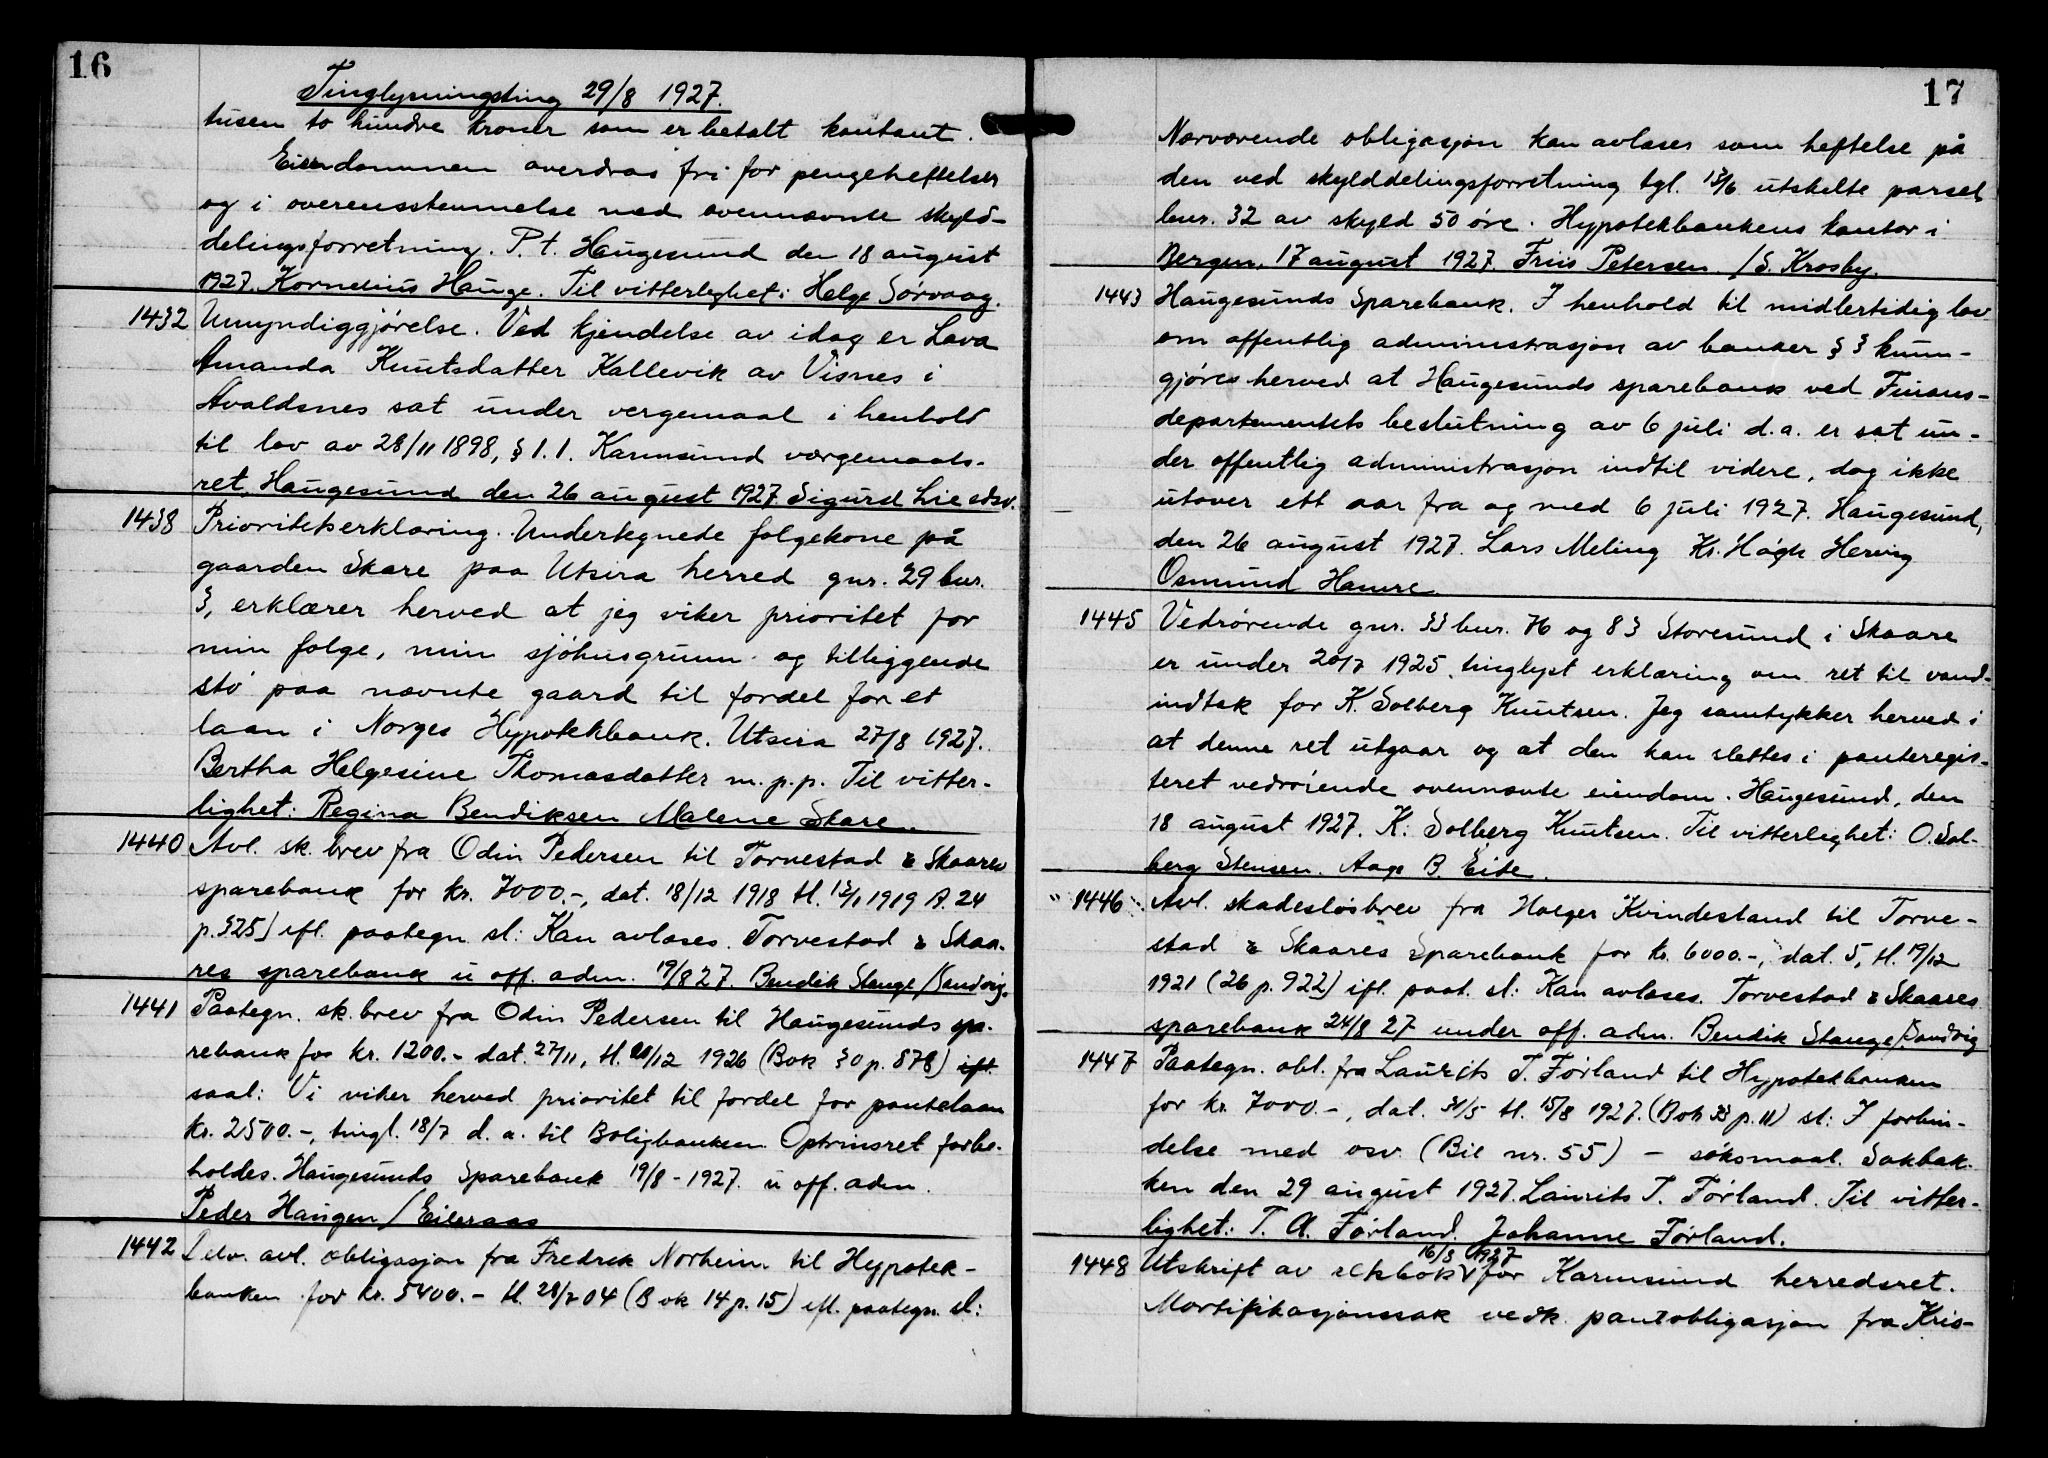 16
Tinglysningsting 29/8 1927.
tusen to hundre kroner som er betalt kontant.
Eiendommen overdras fri for pengeheftelser
og i overensstemmelse med ovennævnte skyld-
delingsforretning. P.t. Haugesund den 18 august
1927. Kornelius Hauge. Til vitterlighet: Helge Sørvaag.
1432 Umyndiggjørelse. Ved kjendelse av idag er Lava
Amanda Knutsdatter Kallevik av Visnes i
Avaldsnes sat under vergemaal i henhold
til lov av 28/11 1898, § 1.1. Karmsund værgemaals-
ret, Haugesund den 26 august 1927 Sigurd Lie edsv.
1438 Prioritetserklæring. Undertegnede følgekone på
gaarden Skare paa Utsira herred gnr. 29 bnr.
3, erklærer herved at jeg viker prioritet for
min følge, min sjøhusgrunn og tilliggende
stø paa nævnte gaard til fordel for et
laan i Norges Hypotekbank. Utsira 27/8 1927.
Bertha Helgesine Thomasdatter m.p.p. Til vitter-
lighet: Regina Bendiksen Malene Skare.
1440 Avl. sk. brev fra Odin Pedersen til Torvestad & Skaares
sparebank for kr. 7000.-, dat. 18/12 1918 tl. 13/1 1919 A. 24
p. 325) ifl. paategn sl: Kan avlæses. Torvestad & Skaa-
res sparebank u off. adm. 19/8 27. Bendik Stange/Sandvig.
1441 Paategn. sk. brev fra Odin Pedersen til Haugesunds spa-
rebank for kr. 1200.- dat. 27/11, tl. 20/12 1926 (Bok 30 p. 878) ifl.
saal: Vi viker herved prioritet til fordel for pantelaan
kr. 2500.-, tingl. 18/7 d. a. til Boligbanken. Optrinsret forbe-
holdes. Haugesunds Sparebank 19/8-1927. u off. adm.
Peder Haugen/Eileraas
1442 Delv. avl. obligasjon fra Fredrek Norheim til Hypotek-
banken for kr. 5400.- tl. 28/2 04 (Bok 14 p. 15) ifl. paategn. sl:
17
Nærværende obligasjon kan avlæses som heftelse på
den ved skylddelingsforretning tgl. 15/6 utskilte parsel
bnr. 32 av skyld 50 øre. Hypotekbankens kontor i
Bergen, 17 august 1927. Friis Petersen /S. Krosby.
1443 Haugesunds Sparebank. I henhold til midlertidig lov
om offentlig administrasjon av banker § 3 kunn-
gjøres herved at Haugesunds sparebank ved Finans-
departementets beslutning av 6 juli d.a. er sat un-
der offentlig administrasjon indtil videre, dog ikke
utover ett aar fra og med 6 juli 1927. Haugesund,
den 26 august 1927. Lars Meling Kr. Høgh Hervig
Osmund Hamre
1445 Vedrørende gnr. 33 bnr. 76 og 83 Storesund i Skaare
er under 20/7 1925 tinglyst erklæring om ret til vand-
indtak for K. Solberg Knutsen. Jeg samtykker herved i
at denne ret utgaar og at den kan slettes i panteregis-
teret vedrørende ovennævnte eiendom. Haugesund, den
18 august 1927. K. Solberg Knutsen. Til vitterlighet: O. Sol-
berg Stensen. Aage B. Eide.
1446 Avl. skadesløsbrev fra Holger Kvindesland til Torve-
stad & Skaares Sparebank for kr. 6000.-, dat. 5, tl. 19/12
1921 (26 p. 922) ifl. paat. sl: Kan avlæses. Torvestad & Skaares
sparebank 24/8 27 under off. adm. Bendik Stange/Sandvig
1447 Paategn. obl. fra Laurits T. Førland til Hypotekbanken
for kr. 7000.-, dat. 31/5 tl. 15/8 1927. (Bok 33 p. 11) sl: I forbin-
delse med osv. (Bil nr. 55) - søksmaal. Sakbak-
ken den 29 august 1927. Laurits T. Førland. Til vitter-
lighet: T. A. Førland. Johanne Førland.
1448 Utskrift av ekbok 16/3 1927 for Karmsund herredsret.
Mortifikasjonssak vedk. pantobligasjon fra Kris-